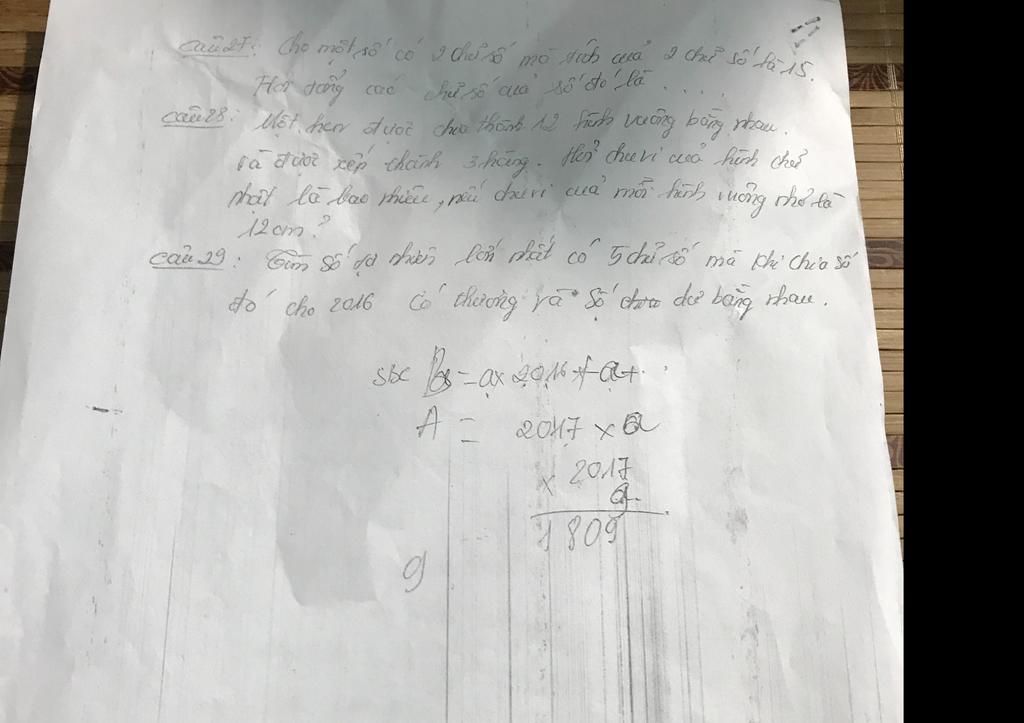 Câu 27: Cho một số có 2 chữ số mà tích cuả 2 chữ số là 15.
Hỏi tổng các chữ số cuả số đó là . . . .
Câu 28: Một hcn được chia thành 12 hình vuông bằng nhau.
và được xếp thành 3 hàng. Hỏi chu vi cuả hình chữ
nhật là bao nhiêu, nếu chu vi cuả mỗi hình vuông nhỏ là
12cm?
Câu 29: Tìm số tự nhiên lớn nhất có 5 chữ số mà khi chia số
đó cho 2016 có thương và số dư bằng nhau.
sbc = a x 2016 + a
A = 2017 x a
x 2017
1809
9